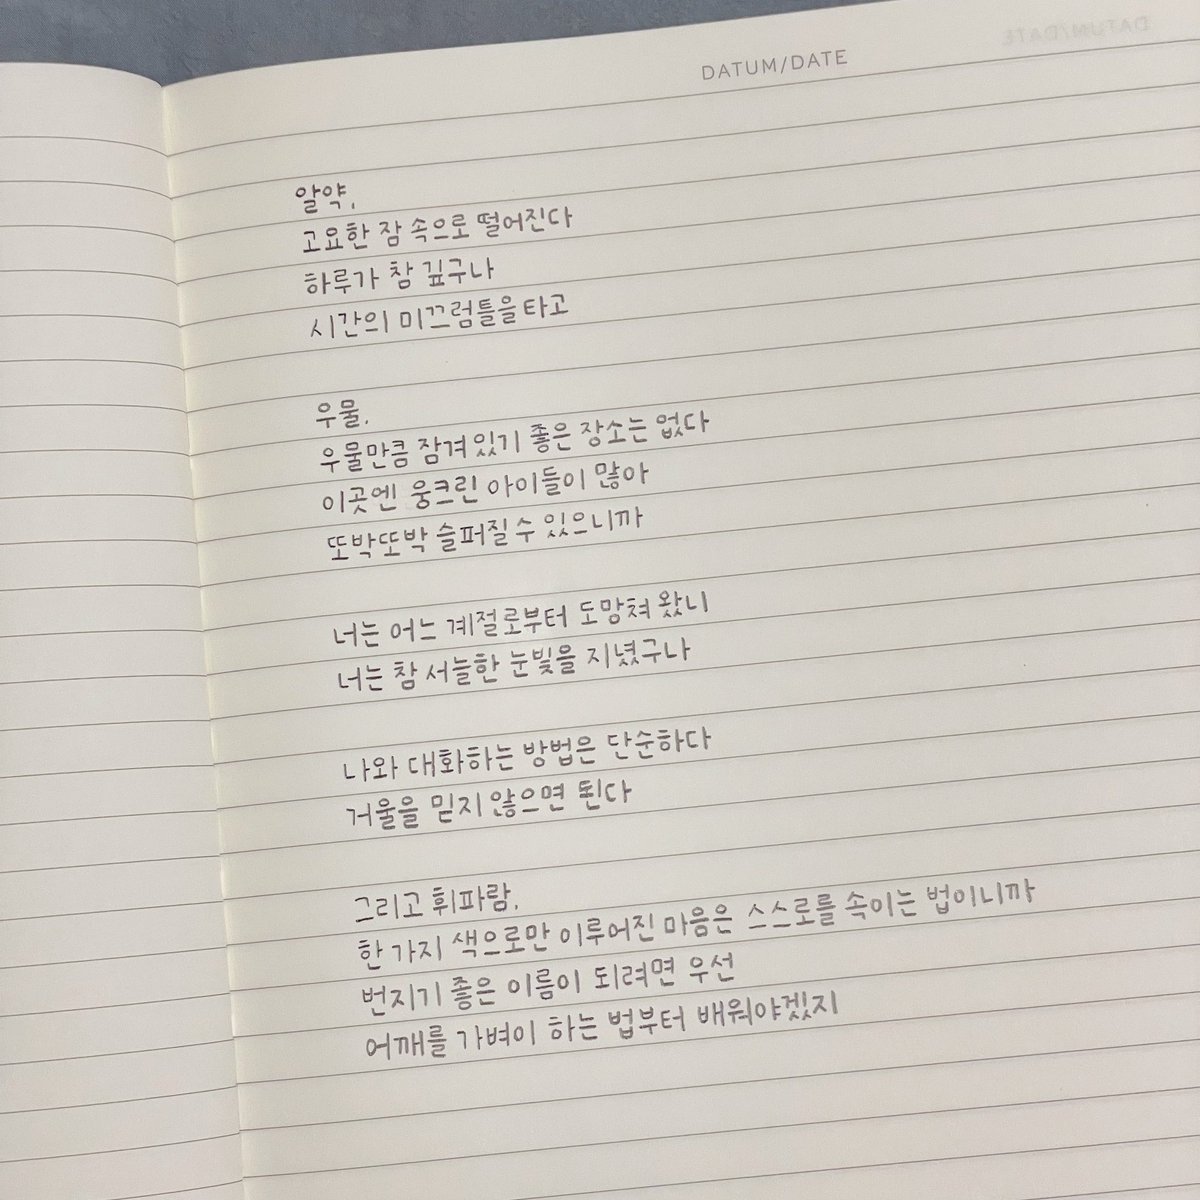 DATUM/DATE
알약,
고요한 잠 속으로 떨어진다
하루가 참 깊구나
시간의 미끄럼틀을 타고
우물,
우물만큼 잠겨있기 좋은 장소는 없다
이곳엔 웅크린 아이들이 많아
또박또박 슬퍼질 수 있으니까
너는 어느 계절로부터 도망쳐 왔니
너는 참 서늘한 눈빛을 지녔구나
나와 대화하는 방법은 단순하다
거울을 믿지 않으면 된다
그리고 휘파람,
한 가지 색으로만 이루어진 마음은 스스로를 속이는 법이니까
번지기 좋은 이름이 되려면 우선
어깨를 가벼이 하는 법부터 배워야겠지